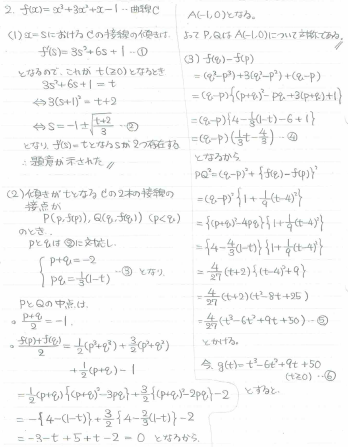 2. f(x)=x³+3x²+x-1 … 曲線C
(1) x=sにおけるCの接線の傾きは
f'(s)=3s²+6s+1 …①
となるので、これが t(≥0)となるとき
3s²+6s+1=t
⇔3(s+1)²=t+2
⇔s=-1±√((t+2)/3) …②
となり f'(s)=tとなるsが2つ存在する
∴題意が示された 〃
(2) 傾きがtとなるCの2本の接線の
接点が
P(p, f(p)), Q(q, f(q)) (p<q)
のとき、
pとqは②に対応し
{ p+q=-2
pq=1/3(1-t) …③ となり
PとQの中点は、
。(p+q)/2=-1.
。(f(p)+f(q))/2=1/2(p³+q³)+3/2(p²+q²)
+1/2(p+q)-1
=1/2(p+q){(p+q)²-3pq}+3/2{(p+q)²-2pq}-2
=-{4-(1-t)}+3/2{4-2/3(1-t)}-2
=-3-t+5+t-2=0 となるから
A(-1,0)となる。
よって P,Qは A(-1,0)について対称である。〃
(3) f(q)-f(p)
=(q³-p³)+3(q²-p²)+(q-p)
=(q-p){(p+q)²-pq+3(p+q)+1}
=(q-p){4-1/3(1-t)-6+1}
=(q-p)(1/3t-4/3) …④
となるから
PQ²=(q-p)²+{f(q)-f(p)}²
=(q-p)²{1+1/9(t-4)²}
={(p+q)²-4pq}{1+1/9(t-4)²}
={4-4/3(1-t)}{1+1/9(t-4)²}
=4/27(t+2){(t-4)²+9}
=4/27(t+2)(t²-8t+25)
=4/27(t³-6t²+9t+50) …⑤
とかける。
今、g(t)=t³-6t²+9t+50
(t≥0) …⑥
とすると、